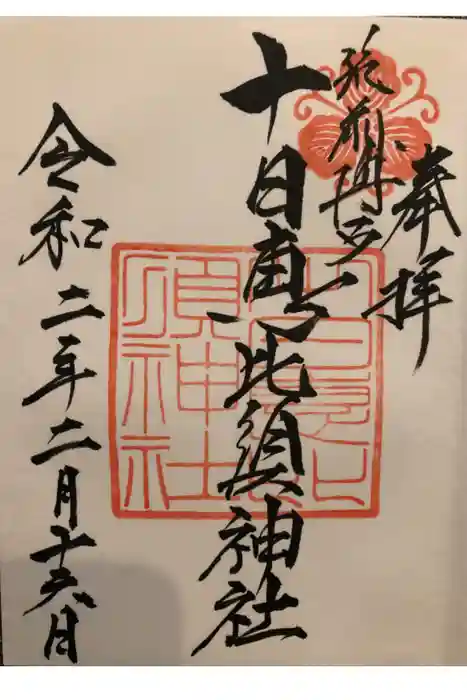 奉拝
筑前博多
十日恵比須神社
令和二年二月十六日
十日恵比須神社